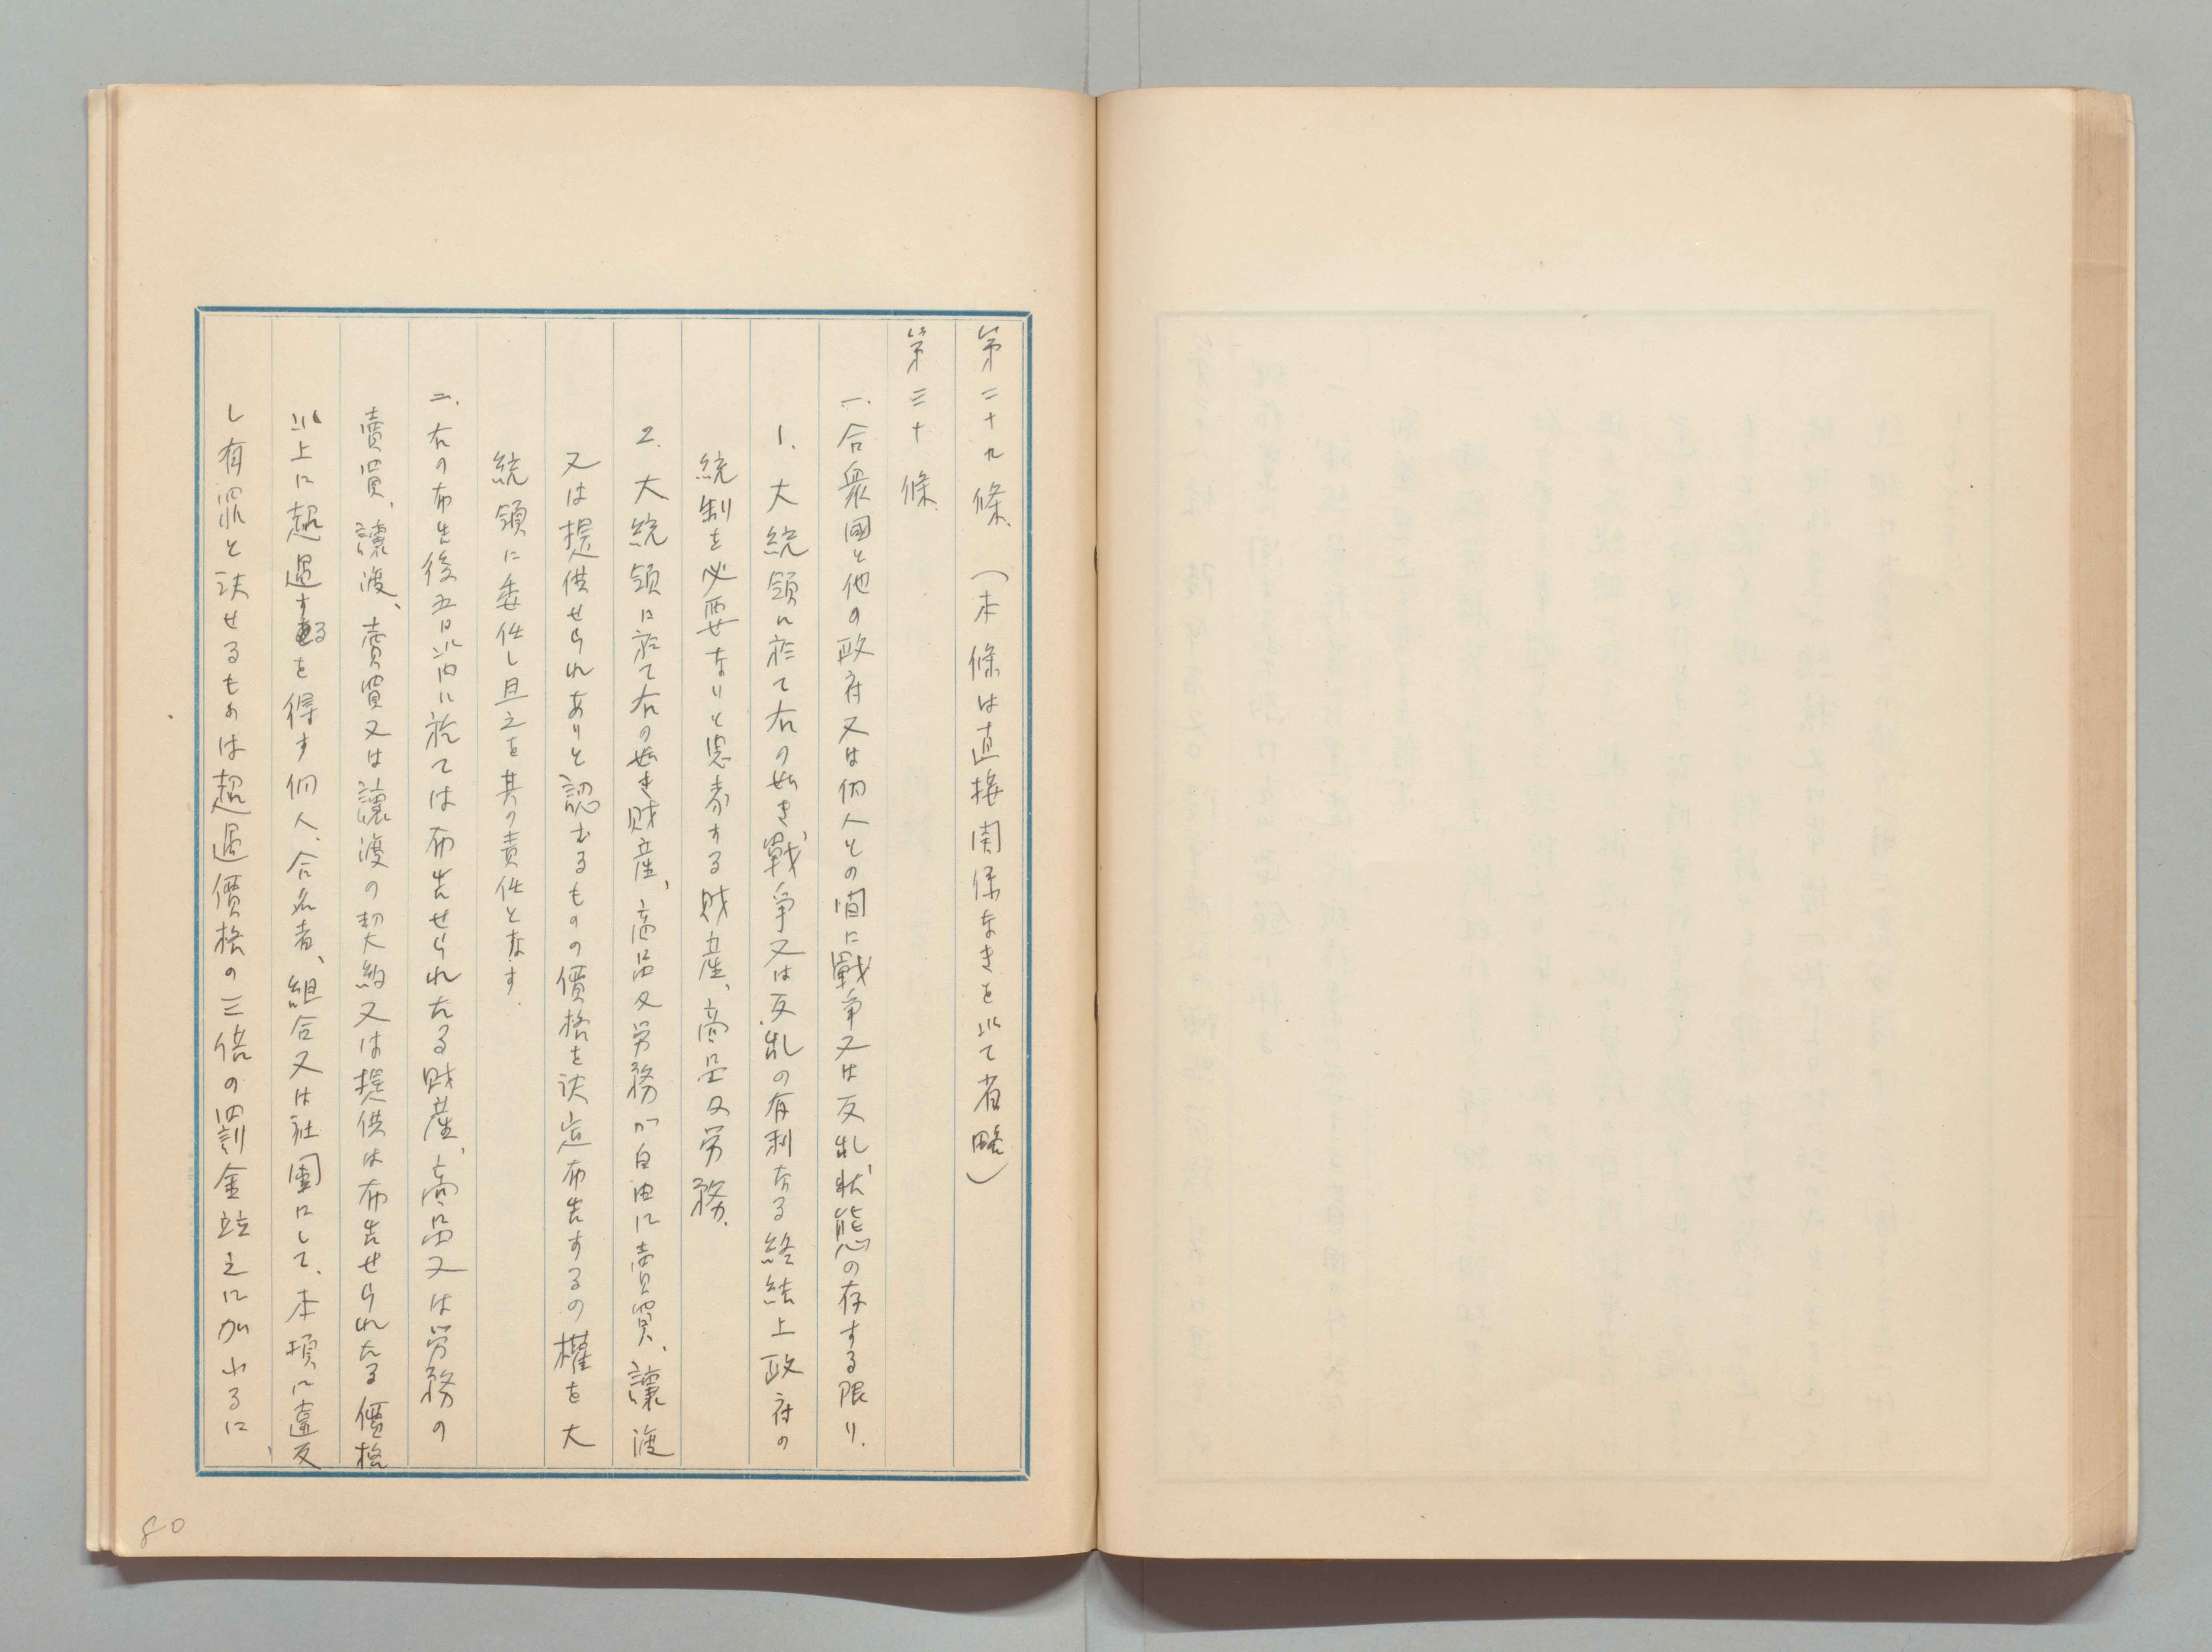 第二十九條（本條は直接関係なきを以て省略）
第三十條
一、合衆國と他の政府又は個人との間に戰争又は反乱状態の存する限り、
1. 大統領に於て右の如き戰争又は反乱の有利なる終結上政府の
統制を必要なりと思考する財産、商品又労務、
2. 大統領に於て右の如き財産、商品又労務が自由に賣買、讓渡
又は提供せられありと認むるものの價格を決定布告するの權を大
統領に委任し且之を其の責任となす、
二、右の布告後五日以内に於ては布告せられたる財産、商品又は労務の
賣買、讓渡、賣買又は讓渡の契約又は提供は布告せられたる價格
以上に超過するを得す個人、合名者、組合又は社團にして、本項に違反
し有罪と決せるものは超過價格の三倍の罰金並之に加ふるに、
80